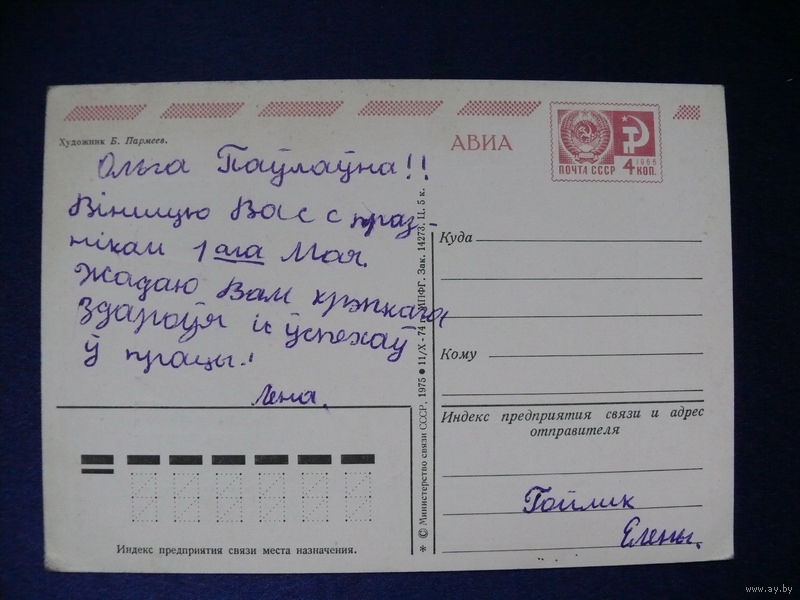 Художник Б. Пармеев.
АВИА
1966
ПОЧТА СССР 4 КОП.
Ольга Паўлаўна!!
Віншую Вас с праз-
нікам 1 ага Мая.
Жадаю Вам крэпкага
здароўя і ўспехаў
ў працы!
Лена.
Куда
Кому
Индекс предприятия связи и адрес
отправителя
Гойлик
Елены.
Индекс предприятия связи места назначения.
* © Министерство связи СССР, 1975 ● 11/X - 74 г. МПФГ. Зак. 14273. Ц. 5 к.
www.ay.by